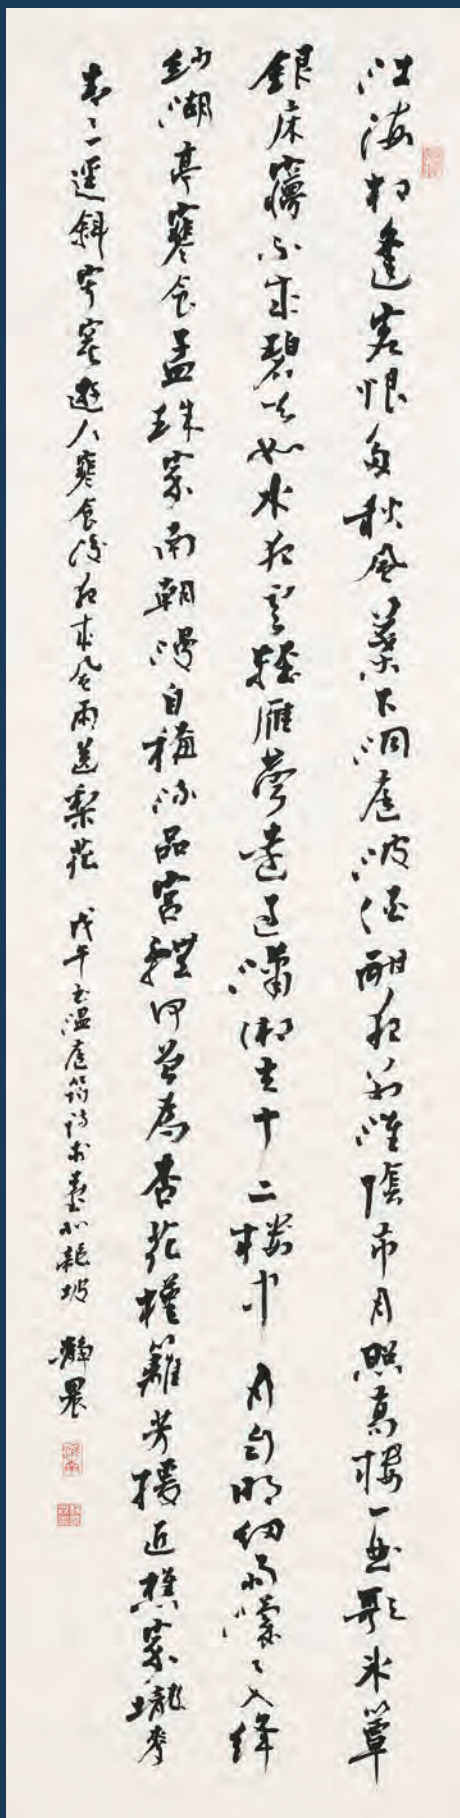 江海相逢客恨多秋風葉下洞庭波酒酣夜別淮陰市月照高樓一曲歌冰簟
銀床寢不成碧天如水夜雲輕雁聲遠過瀟湘去十二樓中月自明細雨濛〻入絳
紗湖亭寒食孟珠家南朝漫自稱流品宮體何曾為杏花槿籬芳援近樵家壠麥
青〻一逕斜寂寞遊人寒食後夜來風雨送梨花 戊午書溫庭筠詩於臺北龍坡 靜農